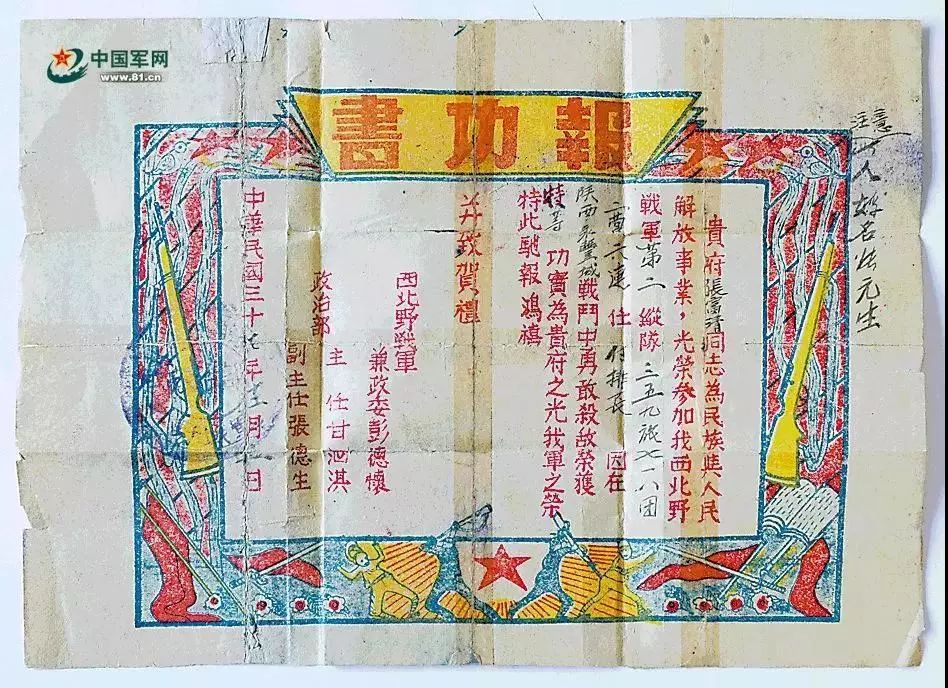 中国军网
www.81.cn
報功書
注意
人好名法元生
貴府張富清同志為民族雖人民
解放事業，光榮參加我西北野
戰軍第二縱隊三五九旅七一八团
二营六連任付排長因在
陕西永豐城戰鬥中勇敢殺敌榮獲
特等功實為貴府之光我軍之榮
特此馳報鴻禧
并致賀禮
西北野戰軍
兼政委彭德懷
政治部
主任甘泗淇
副主任張德生
中華民國三十七年十二月日